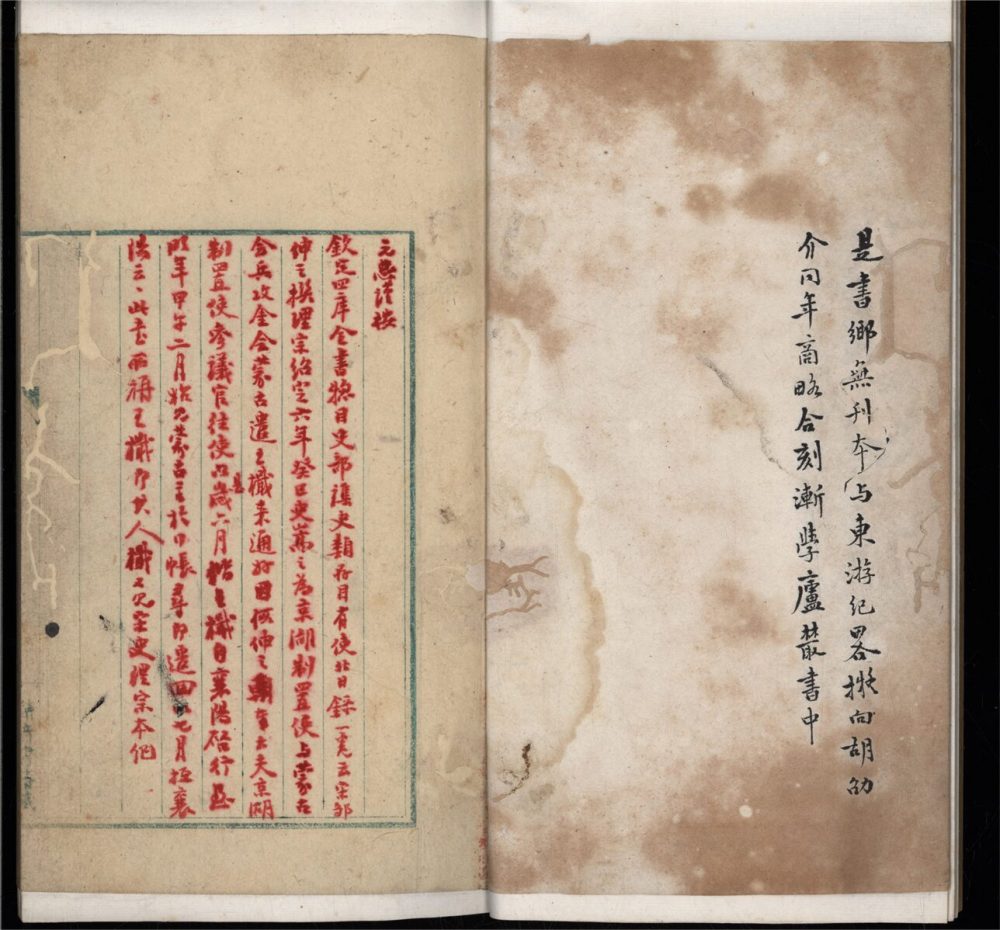 是書鄉無刊本与東游紀畧擬向胡劭
介同年商略合刻漸學廬叢書中
元謹按
欽定四庫全書揔目史部雜史類存目有使北日録一卷云宋鄒
伸之撰理宗紹定六年癸巳史嵩之為京湖制置使与蒙古
會兵攻金會蒙古遣王檝来通好因假伸之朝奉大夫京湖
制置使參議官往使以是歲六月偕王檝自襄陽啓行至
明年甲午二月始見蒙古主於行帳尋即遣回以七月抵襄
陽云云此書所稱王檝即其人檝又見宋史理宗本紀